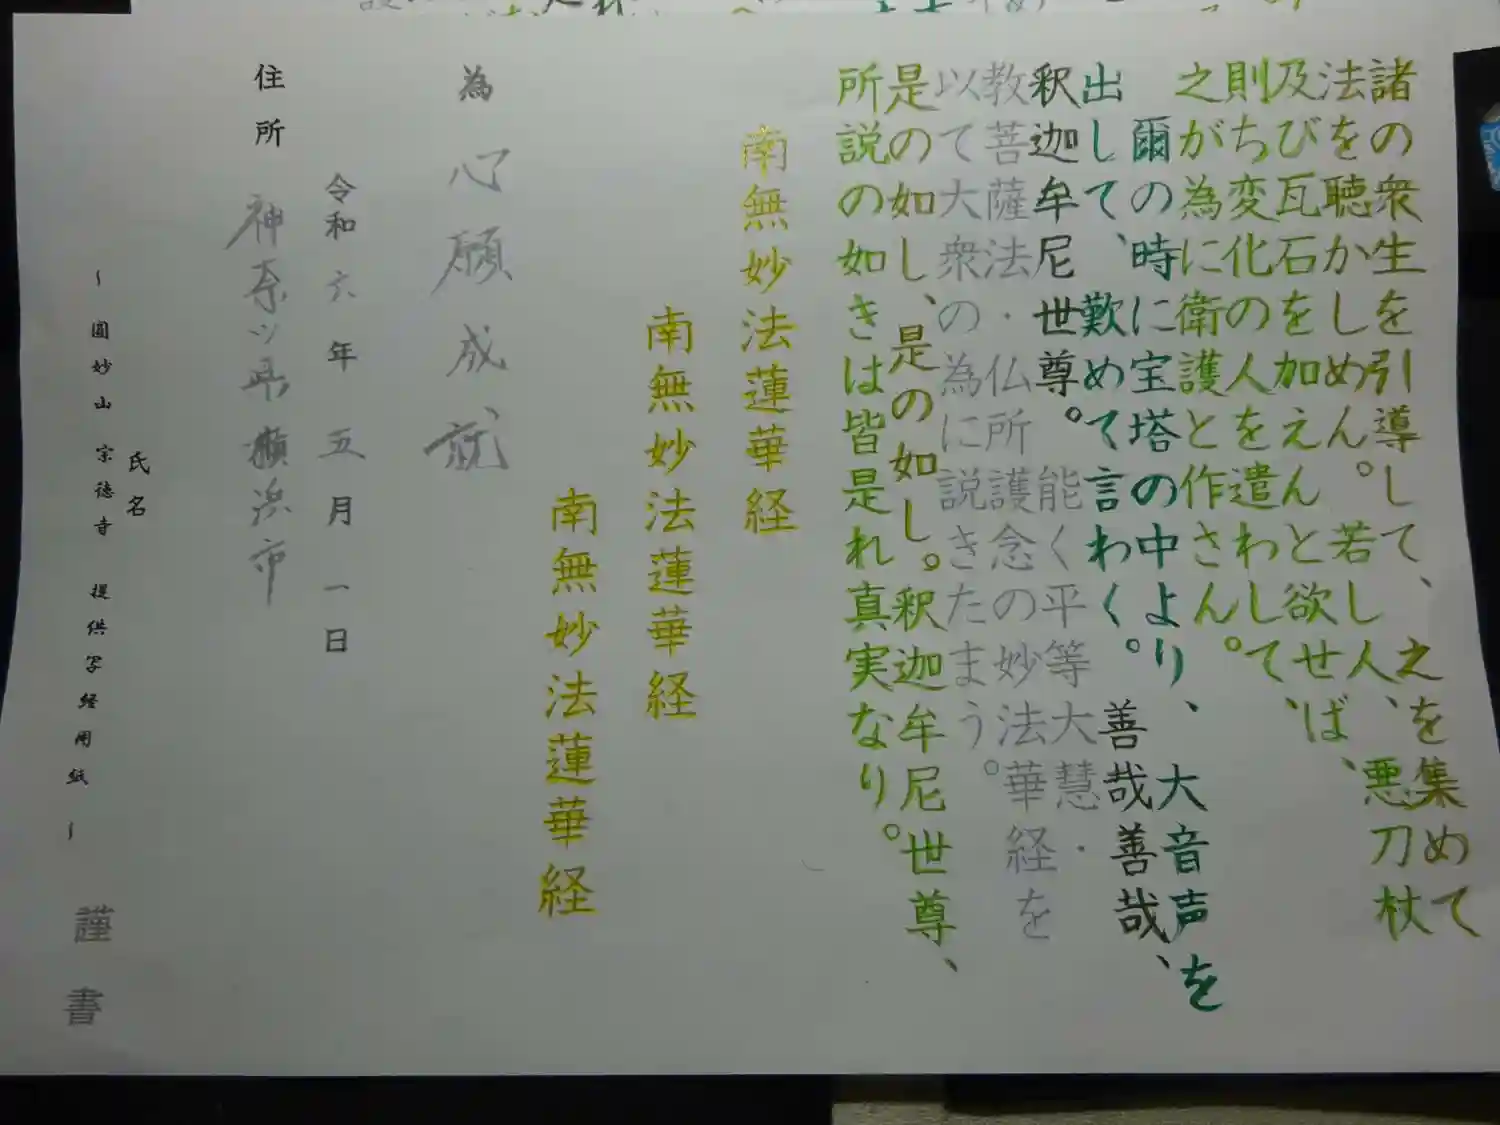 諸の衆生を引導して、之を集めて
法を聴かしめん。若し人、悪刀杖
及び瓦石を加えんと欲せば、
則ち変化の人を遣わして、
之が為に衛護と作さん。
爾の時に宝塔の中より、大音声を
出して、歎めて言わく。善哉善哉、
釈迦牟尼世尊。能く平等大慧・
教菩薩法・仏所護念の妙法華経を
以て大衆の為に説きたまう。
是の如し、是の如し。釈迦牟尼世尊、
所説の如きは皆是れ真実なり。
南無妙法蓮華経
南無妙法蓮華経
南無妙法蓮華経
為 心願成就
令和六年五月一日
住所 神奈川県横浜市
氏名
~圓妙山 宗徳寺 提供写経用紙~ 謹書